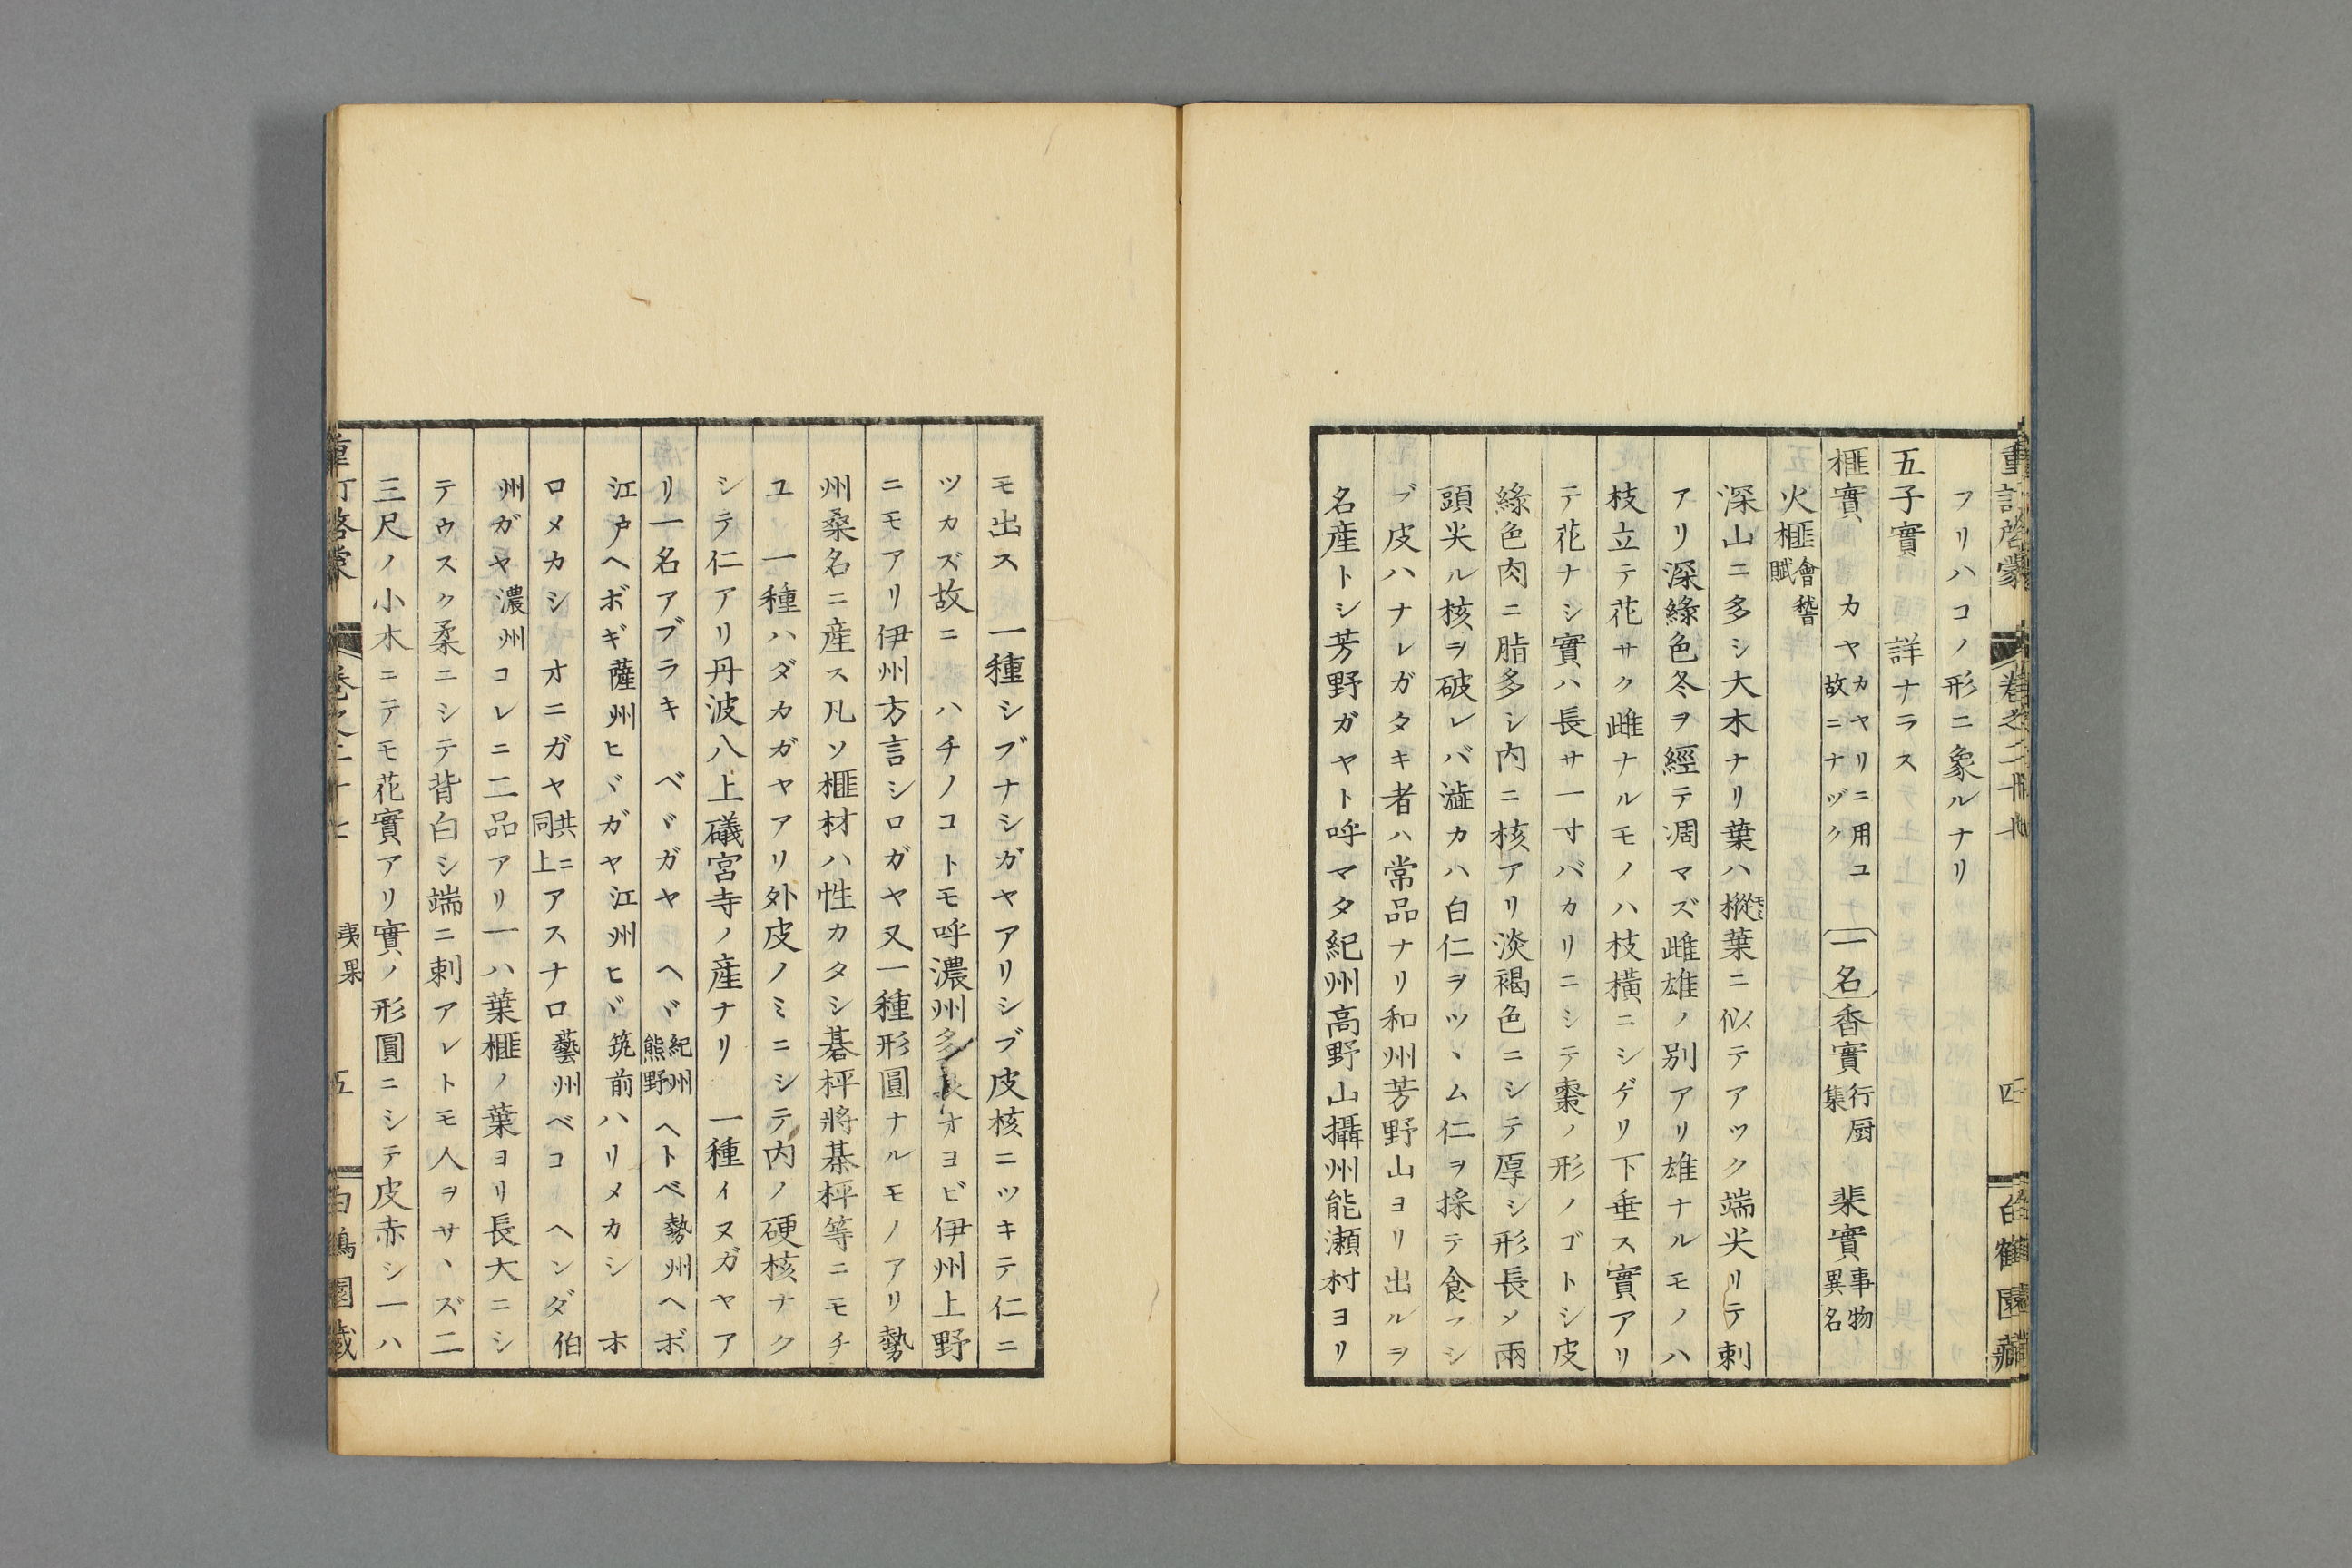 重訂啓蒙 卷之二十七 四 白鶴園藏
フリハコノ形ニ象ルナリ
五子實 詳ナラス
榧實 カヤ カヤリニ用ユ故ニナヅク 一名 香實 行厨集 棐實 事物異名
火榧 會稽賦
深山ニ多シ大木ナリ葉ハ樅モミ葉ニ似テアツク端尖リテ刺
アリ深緑色冬ヲ經テ凋マズ雌雄ノ別アリ雄ナルモノハ
枝立テ花サク雌ナルモノハ枝横ニシゲリ下垂ス實アリ
テ花ナシ實ハ長サ一寸バカリニシテ棗ノ形ノゴトシ皮
緑色肉ニ脂多シ内ニ核アリ淡褐色ニシテ厚シ形長メ兩
頭尖ル核ヲ破レバ澁カハ白仁ヲツヽム仁ヲ採テ食フシ
ブ皮ハナレガタキ者ハ常品ナリ和州芳野山ヨリ出ルヲ
名産トシ芳野ガヤト呼マタ紀州高野山攝州能瀬村ヨリ
モ出ス 一種シブナシガヤアリシブ皮核ニツキテ仁ニ
ツカズ故ニ ハチノコトモ呼濃州多良オヨビ伊州上野
ニモアリ伊州方言シロガヤ又一種形圓ナルモノアリ勢
州桑名ニ産ス凡ソ榧材ハ性カタシ碁枰將棊枰等ニモチ
ユ 一種ハダカガヤアリ外皮ノミニシテ内ノ硬核ナク
シテ仁アリ丹波八上礒宮寺ノ産ナリ 一種イヌガヤア
リ一名アブラキ ベヾガヤ ヘヾ 紀州熊野 ヘトベ 勢州 ヘボ
江戸 ヘボギ 薩州 ヒヾガヤ 江州 ヒヾ 筑前 ハリメカシ ホ
ロメカシ オニガヤ 共ニ同上 アスナロ 藝州 ベコ ヘンダ 伯
州 ガヤ 濃州 コレニ二品アリ一ハ葉榧ノ葉ヨリ長大ニシ
テウスク柔ニシテ背白シ端ニ刺アレトモ人ヲサヽズ二
三尺ノ小木ニテモ花實アリ實ノ形圓ニシテ皮赤シ一ハ
重訂啓蒙 卷之二十七 夷果 五 白鶴園藏